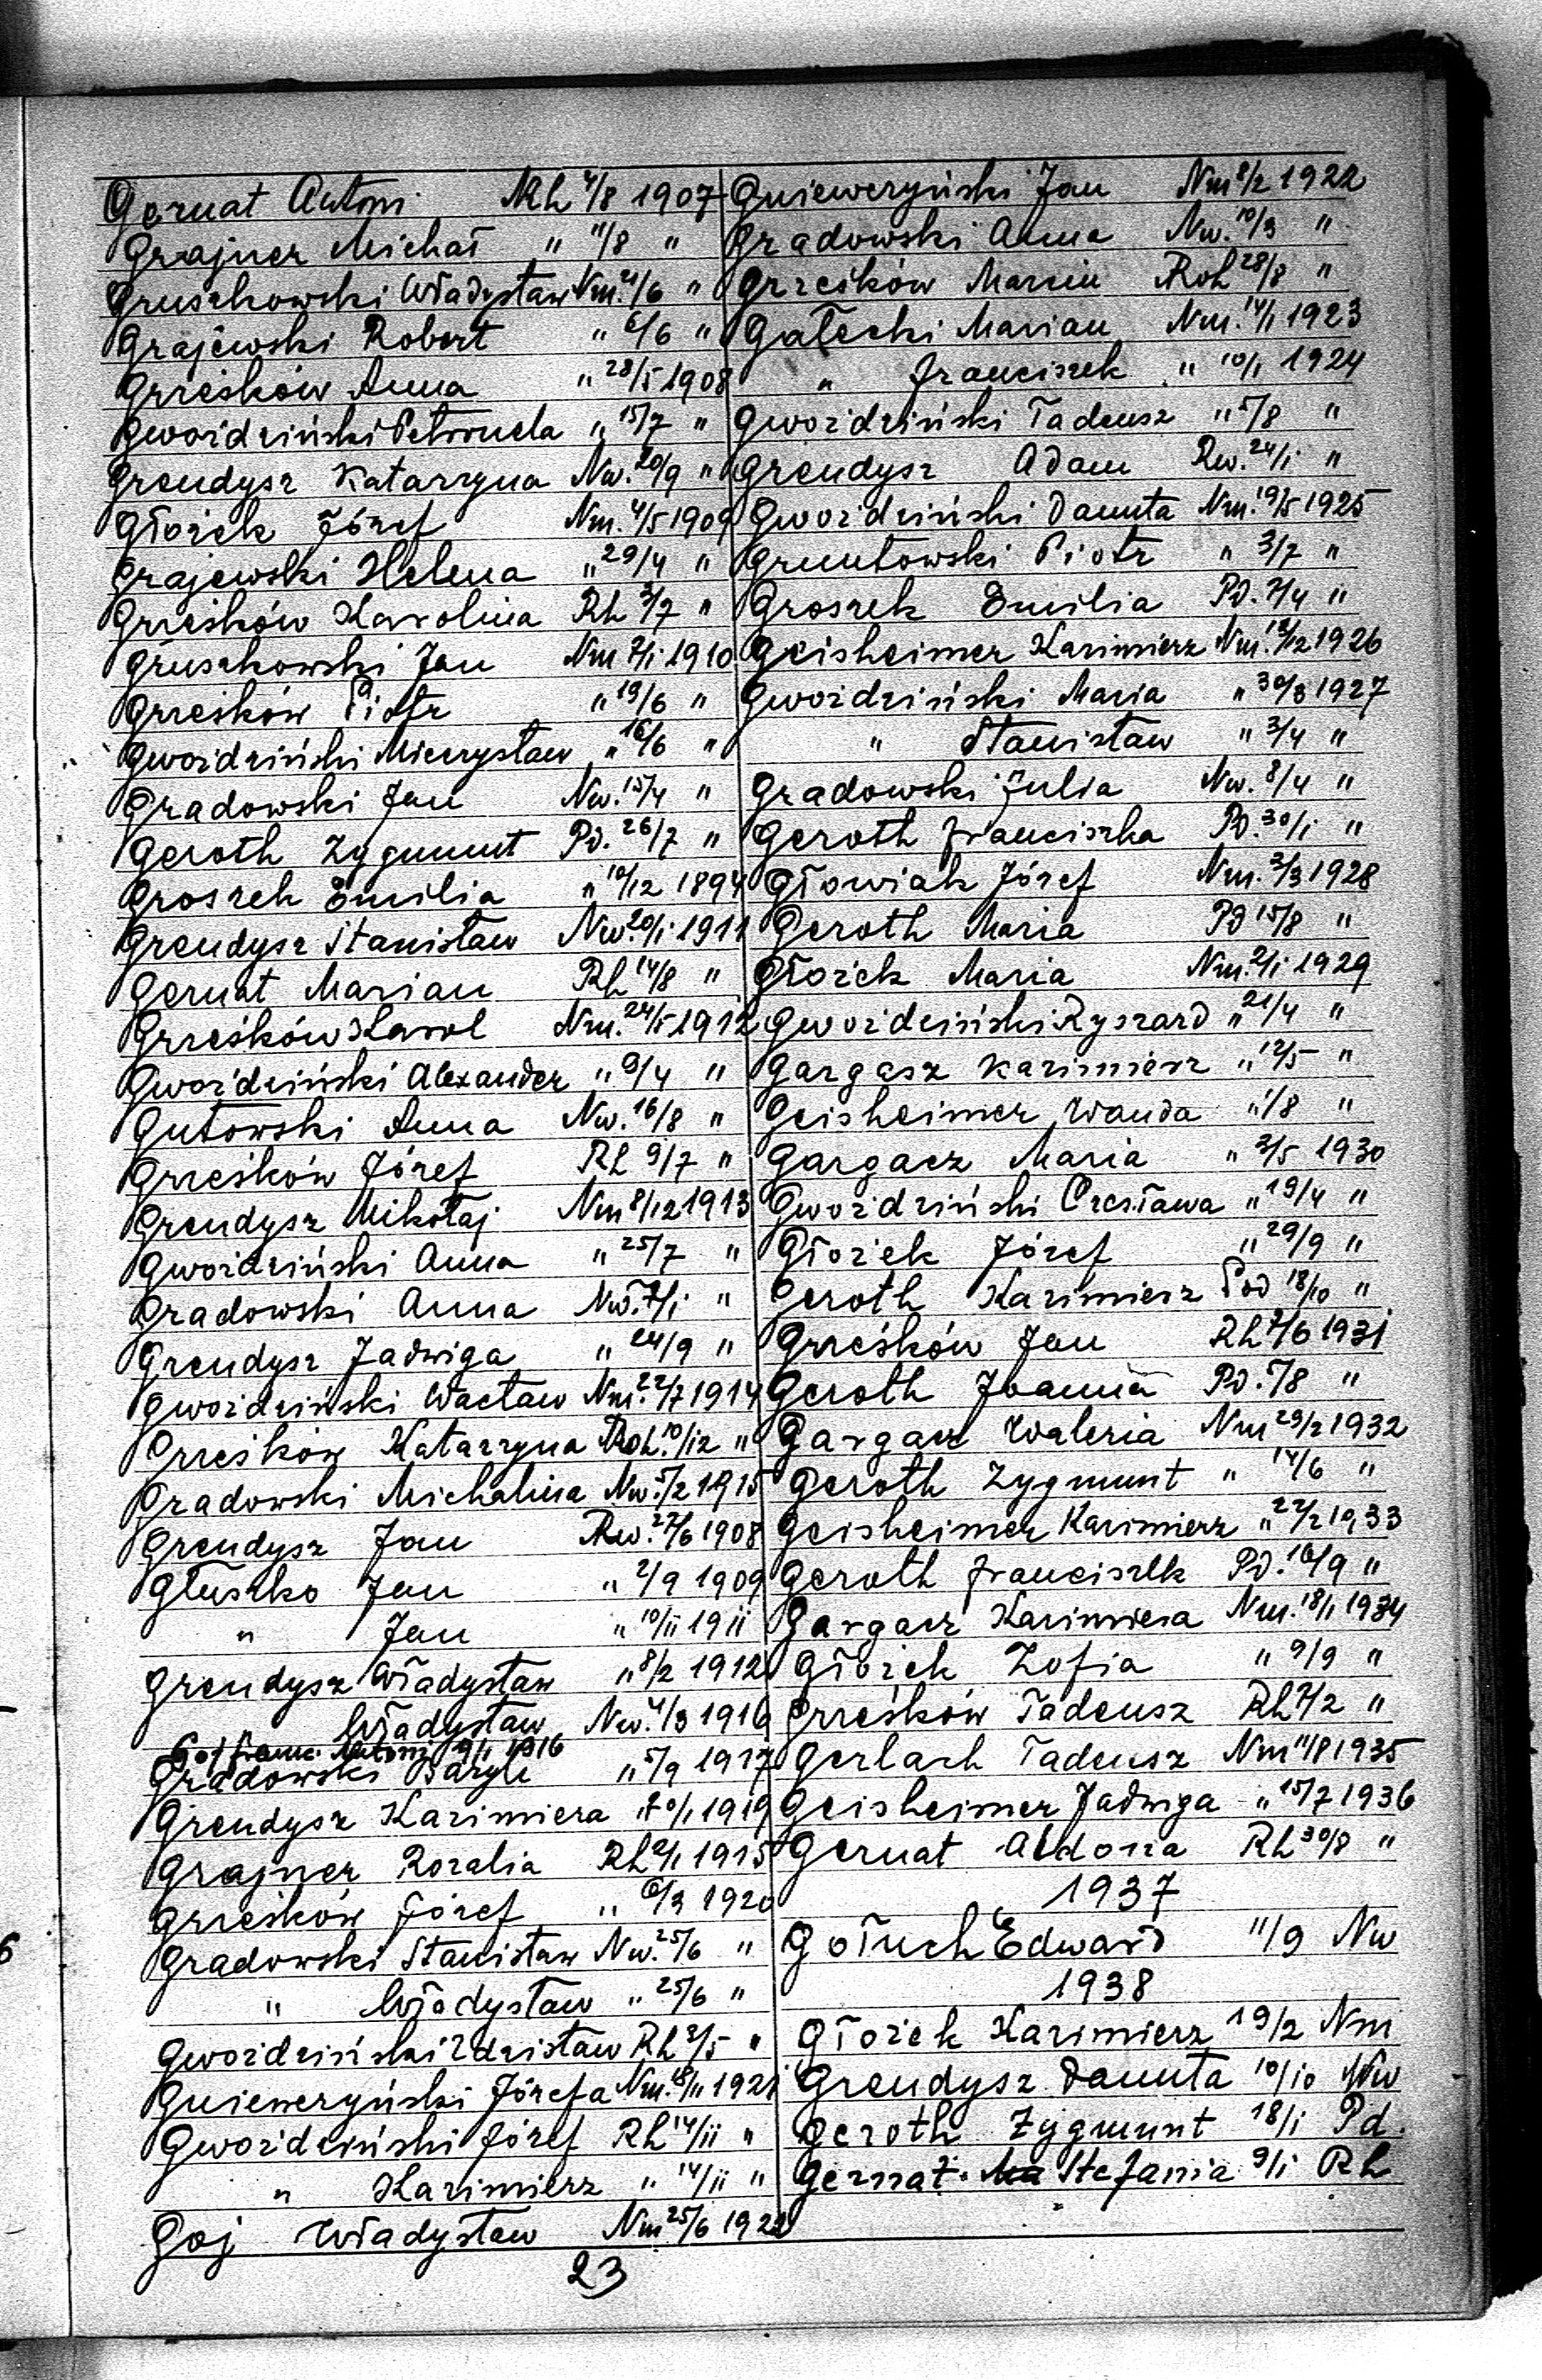 Gernat Antoni Rh 4/8 1907
Grajner Michał " 11/8 "
Gruszkowski Władysław Nm. 21/6 "
Grajewski Robert " 6/6 "
Grześków Anna " 28/5 1908
Gwoździński Petronela " 15/7 "
Grendysz Katarzyna Nw. 20/9 "
Głożek Józef Nm. 4/5 1909
Grajewski Helena " 29/4 "
Grześków Karolina Rh 3/7 "
Gruszkowski Jan Nm 7/1 1910
Grześków Piotr " 19/6 "
Gwoździński Mieczysław " 16/6 "
Gradowski Jan Nw. 15/4 "
Geroth Zygmunt Pd. 26/7 "
Groszek Emilia " 10/12 1894
Grendysz Stanisław Nw. 20/1 1911
Gernat Marian Rh 14/8 "
Grześków Karol Nm. 24/5 1912
Gwoździński Alexander " 9/4 "
Gutowski Anna Nw. 16/8 "
Grześków Józef Rh 9/7 "
Grendysz Mikołaj Nm 8/12 1913
Gwoździński Anna " 25/7 "
Gradowski Anna Nw. 7/1 "
Grendysz Jadwiga " 24/9 "
Gwoździński Wacław Nm. 22/7 1914
Grześków Katarzyna Roh. 10/12 "
Gradowski Michalina Nw. 5/2 1915
Grendysz Jan Rw. 27/6 1908
Głuszko Jan " 2/9 1909
" Jan " 10/11 1911
Grendysz Władysław " 8/2 1912
" Władysław Nw. 4/3 1916
Gof Franc. Antoni 9/1 1916
Gradowski Bazyli " 5/9 1917
Grendysz Kazimiera " 20/1 1919
Grajner Rozalia Rh 2/1 1915
Grześków Józef " 6/3 1920
Gradowski Stanisław Nw. 25/6 "
" Władysław " 25/6 "
Gwoździński Zdzisław Rh 2/5 "
Gniewczyński Józefa Nm. 18/11 1921
Gwoździński Józef Rh 14/11 "
" Kazimierz " 14/11 "
Goj Władysław Nm 25/6 1922
23
Gniewczyński Jan Nm 8/2 1922
Gradowski Anna Nw. 10/3 "
Grześków Marcin Roh 28/8 "
Gałecki Marian Nm. 14/1 1923
" Franciszek " 10/1 1924
Gwoździński Tadeusz " 5/8 "
Grendysz Adam Rw. 24/1 "
Gwoździński Danuta Nm. 19/5 1925
Gruntowski Piotr " 3/7 "
Groszek Emilia Pd. 7/4 "
Geisheimer Kazimierz Nm. 18/12 1926
Gwoździński Maria " 30/3 1927
" Stanisław " 3/4 "
Gradowski Julia Nw. 8/4 "
Geroth Franciszka Pd. 30/1 "
Głowiak Józef Nm. 3/3 1928
Geroth Maria Pd 15/8 "
Głożek Maria Nm. 2/1 1929
Gwoździński Ryszard " 21/4 "
Gargasz Kazimierz " 12/5 "
Geisheimer Wanda " 1/8 "
Gargacz Maria " 3/5 1930
Gwoździński Czesława " 19/4 "
Głożek Józef " 29/9 "
Geroth Kazimierz Pod 18/10 "
Grześków Jan Rh 7/6 1931
Geroth Joanna Pd. 5/8 "
Gargacz Waleria Nm 29/2 1932
Geroth Zygmunt " 14/6 "
Geisheimer Kazimierz " 22/2 1933
Geroth Franciszek Pd. 16/9 "
Gargacz Kazimiera Nm. 18/1 1934
Głożek Zofia " 9/9 "
Grześków Tadeusz Rh 7/2 "
Gerlach Tadeusz Nm 11/8 1935
Geisheimer Jadwiga " 15/7 1936
Gernat Aldona Rh 30/8 "
1937
Gołuch Edward 11/9 Nw
1938
Głożek Kazimierz 19/2 Nm
Grendysz Danuta 10/10 Nw
Geroth Zygmunt 18/1 Pd.
Gernat Stefania 9/1 Rh